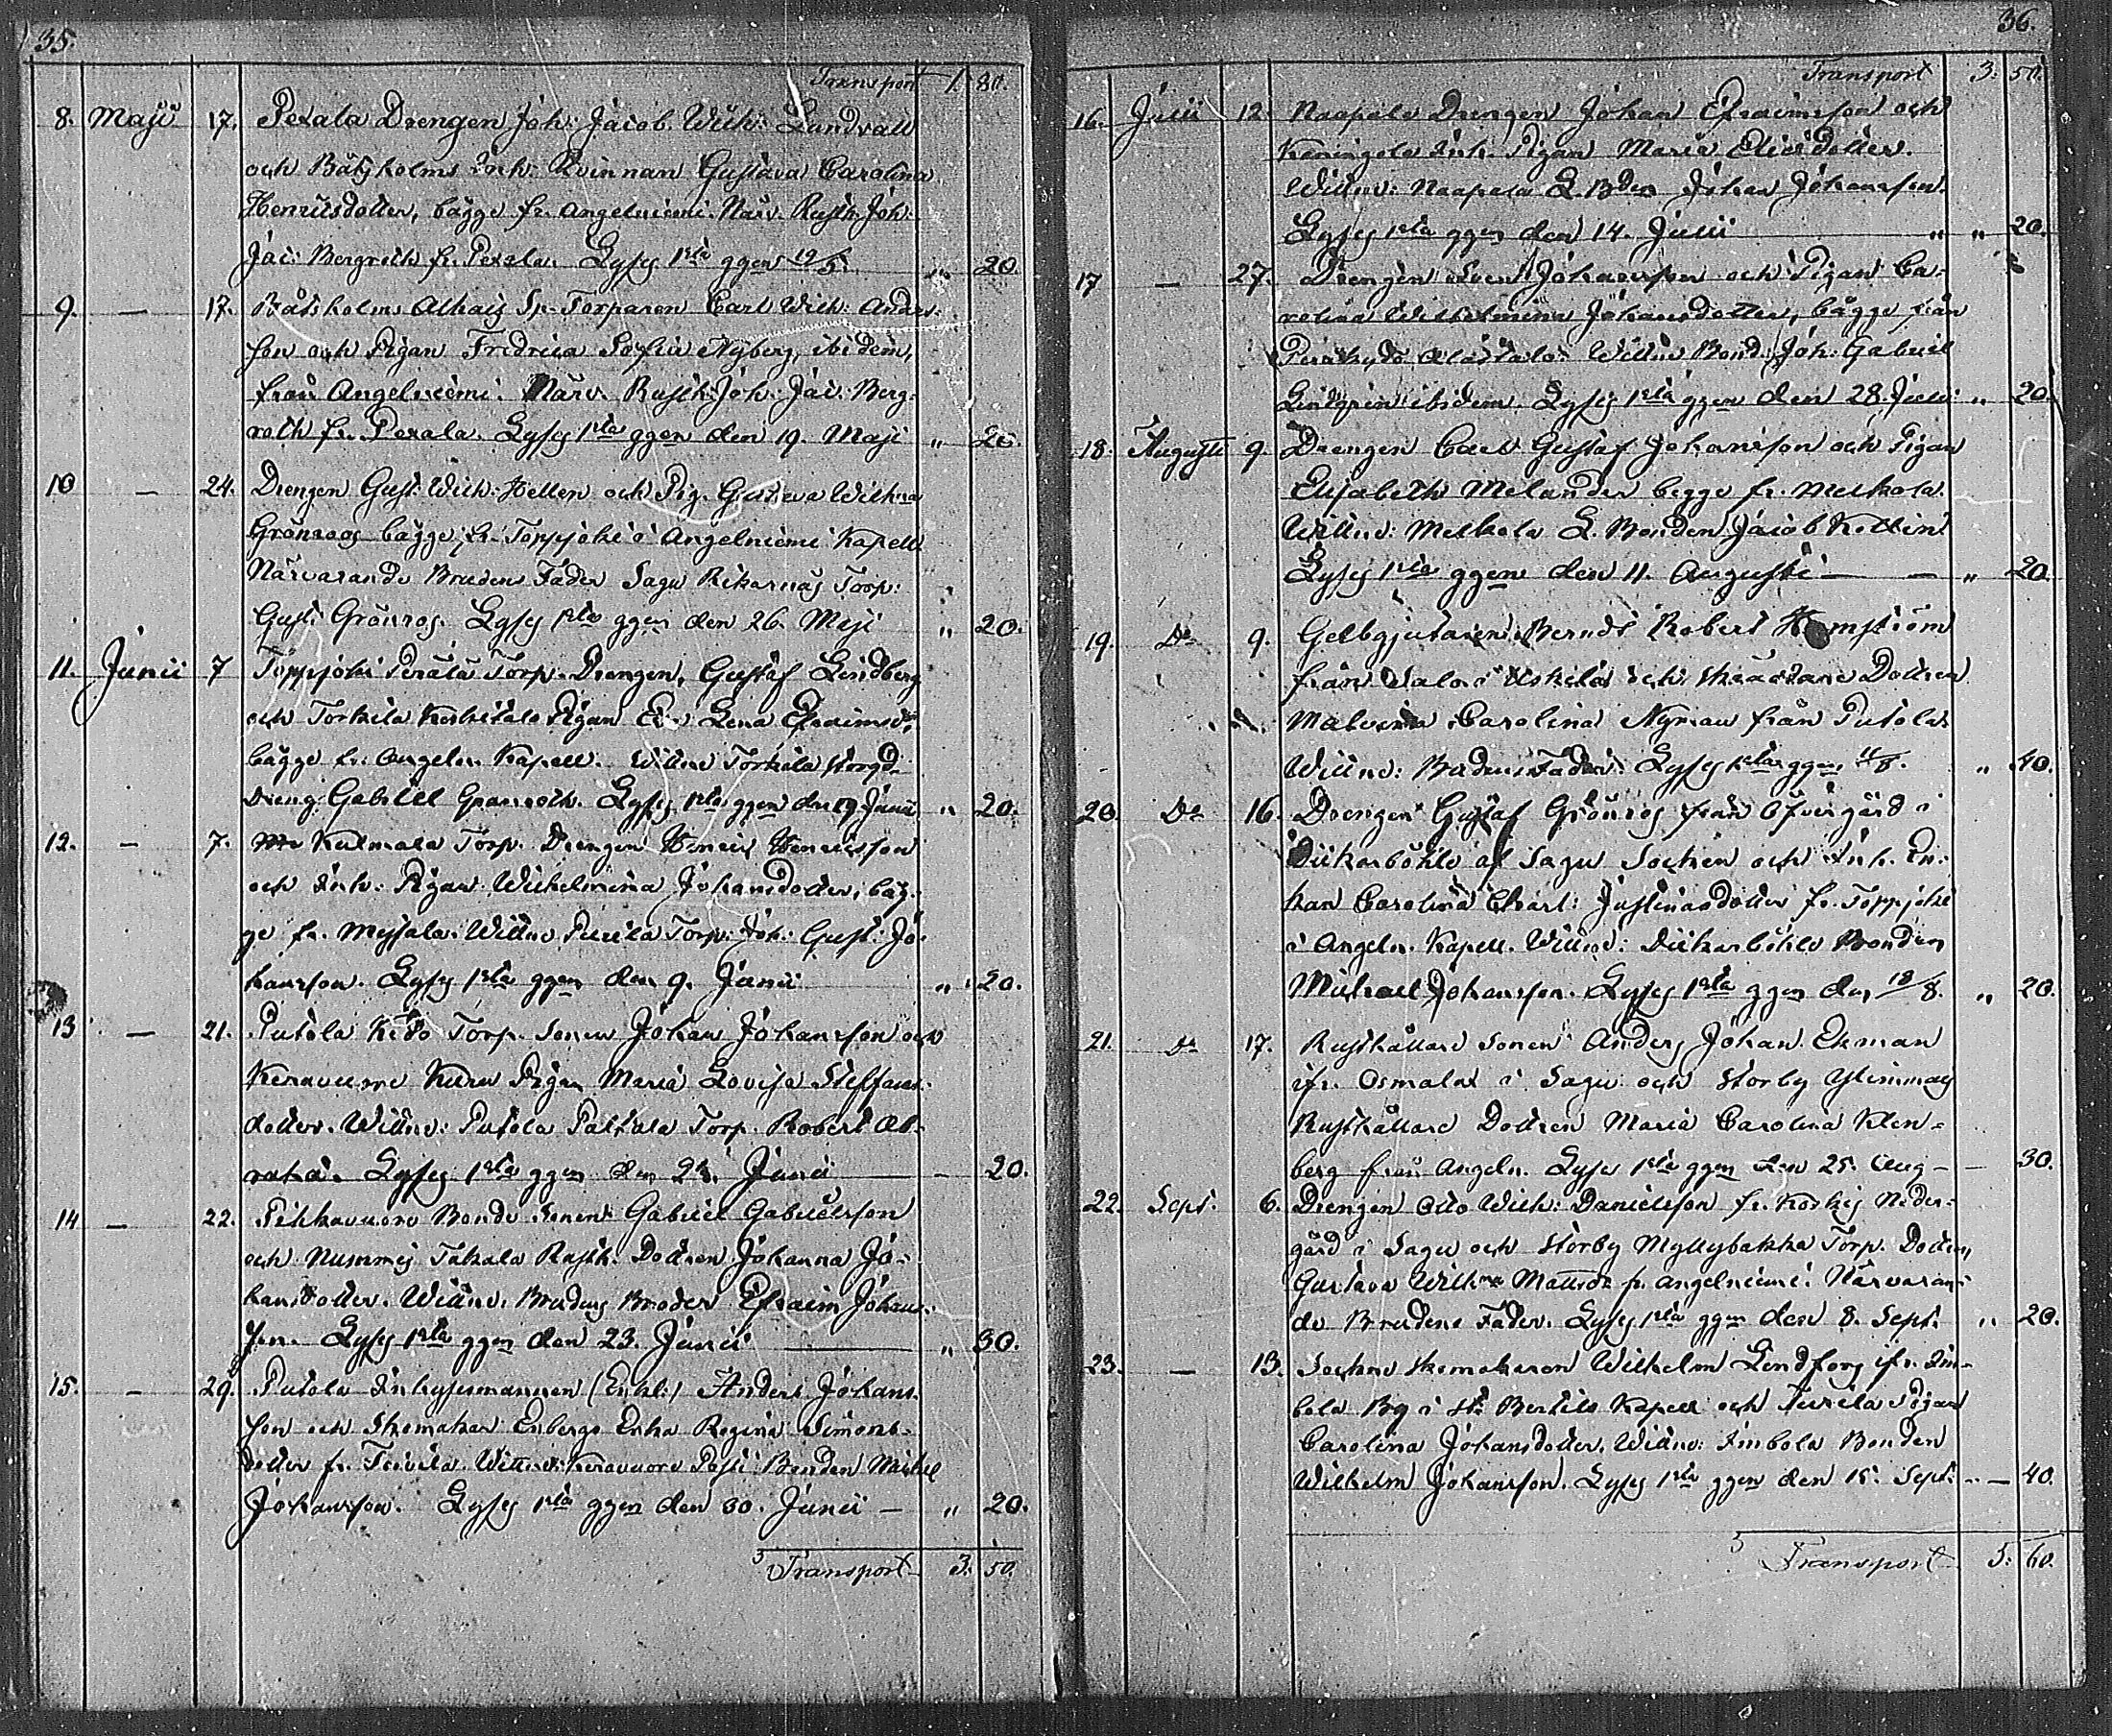 35.
Transport 1. 80.
8. Maji 17. Pexala Drengen Joh: Jacob Wilh: Lundvall
och Båtsholms Inh: Qvinnan Gustava Carolina
Henricsdotter, bägge fr. Angelniemi. Närv. Rusth: Joh:
Jac: Bergroth fr. Pexala. Lyses 1sta ggen 19/5. „ 20.
9. — 17. Båtsholms Alhais Sp. Torparen Carl Wilh: Anders-
son och Pigan Fredrica Sofia Nyberg, ibidem,
från Angelniemi. Närv. Rusth: Joh: Jac: Berg-
roth fr. Pexala. Lyses 1sta ggen den 19. Maji „ 20.
10 — 24. Drengen Gust: Wilh: Hellen och Pig. Gustava Wilhna
Grönroos bägge fr. Toppjoki i Angelniemi Kapell.
Närvarande Brudens Fader Sagu Rikarnäs Torp:
Gust: Grönros. Lyses 1sta ggen den 26. Maji „ 20.
11. Junii 7 Toppjoki Perälä Torp. Drengen, Gustaf Lindberg
och Torkila Koskitalo Pigan Eva Lena Efraimsdr,
bägge fr. Angeln. Kapell. Wittne Torkila
Dreng: Gabriel Granroth. Lyses 1sta ggen den 9 Junii „ 20.
12. — 7. Kulmala Torp. Drengen Henric Henricsson
och Inh: Pigan Wilhelmina Johansdotter, bäg-
ge fr. Myssala. Wittne Torp: Joh: Gust: Jo-
hansson. Lyses 1sta ggen den 9. Junii „ 20.
13 — 21. Putola Kido Torp. Sonen Johan Johansson och
Keravuori Pigan Maria Lovisa Steffans-
dotter. Wittne: Putola Paltala Torp. Robert
Lyses 1sta ggen den 23. Junii — 20.
14 — 22. Pikkavuoro Bonde Sonen Gabriel Gabrielsson
och Nummis Takala Rusth. Dottren Johanna Jo-
hansdotter. Wittne: Brudens Broder Efraim Johans-
son. Lyses 1sta ggen den 23. Junii „ 30.
15. — 29. Putola Inhysesmannen (Enkl:) Anders Johans-
son och Skomakar Enbergs Enka Regina Simons-
dotter fr. Wittne: Keravuore Bonden Michel
Johansson. Lyses 1sta ggen den 30. Junii — „ 20.
Transport 3. 50.
36.
Transport 3. 50.
16. Julii 12. Naapala Drengen Johan Efraimsson och
Koningola Inh. Pigan Maria Eliedotter.
Wittne: Naapala L. Bden Johan Johansson.
Lyses 1sta ggen den 14. Julii „ „ 20.
17 — 27. Drengen Sven Johansson och Pigan Ca-
rolina Wilhelmina Johansdotter, bägge från
Alastalo. Wittne Bond. Joh: Gabriel
Lindgren ibidem. Lyses 1sta ggen den 28. Julii. „ 20.
18. Augusti 9 Drengen Carl Gustaf Johansson och Pigan
Elisabeth Melander begge fr. Melkola.
Wittne: Melkola L. Bonden Jacob
Lyses 1sta ggen den 11. Augusti — — „ 20.
19. Do 9. Gelbgjutaren Berndt Robert
från Salo i Uskela och Skräddare Dottren
Malvina Carolina Nyman från Putola
Wittne: Brudens Fader. Lyses 1sta ggen 11/8. „ 40.
20. Do 16. Drengen Gustaf Grönros från Öfvergård i
Dickarböhle af Sagu Socken och Inh. En-
kan Carolina Charl: Justinasdotter fr. Toppjoki
i Angeln. Kapell. Wittne: Dickarböhle Bonden
Michael Johansson. Lyses 1sta ggen den 18/8. „ 20.
21. Do 17. Rusthållare Sonen Anders Johan Ekman
ifr. Osmalax i Sagu och Storby
Rusthållare Dottren Maria Carolina Klen-
berg från Angeln. Lyses 1sta ggen den 25. Aug — — 30.
22. Sept. 6. Drengen Otto Wilh: Danielsson fr. Koskis Neder-
gård i Sagu och Storby Myllybakka Torp. Dottren,
Gustava Wilhna Mattsdr fr. Angelniemi. Närvaran-
de Brudens Fader. Lyses 1sta ggen den 8. Sept. „ 20.
23. — 13. Sockne Skomakaren Wilhelm Lindfors ifr. Im-
bola By i St. Bertils Kapell och Pigan
Carolina Johansdotter. Wittne: Imbola Bonden
Wilhelm Johansson. Lyses 1sta ggen den 15. Sept: — 40.
Transport 5. 60.